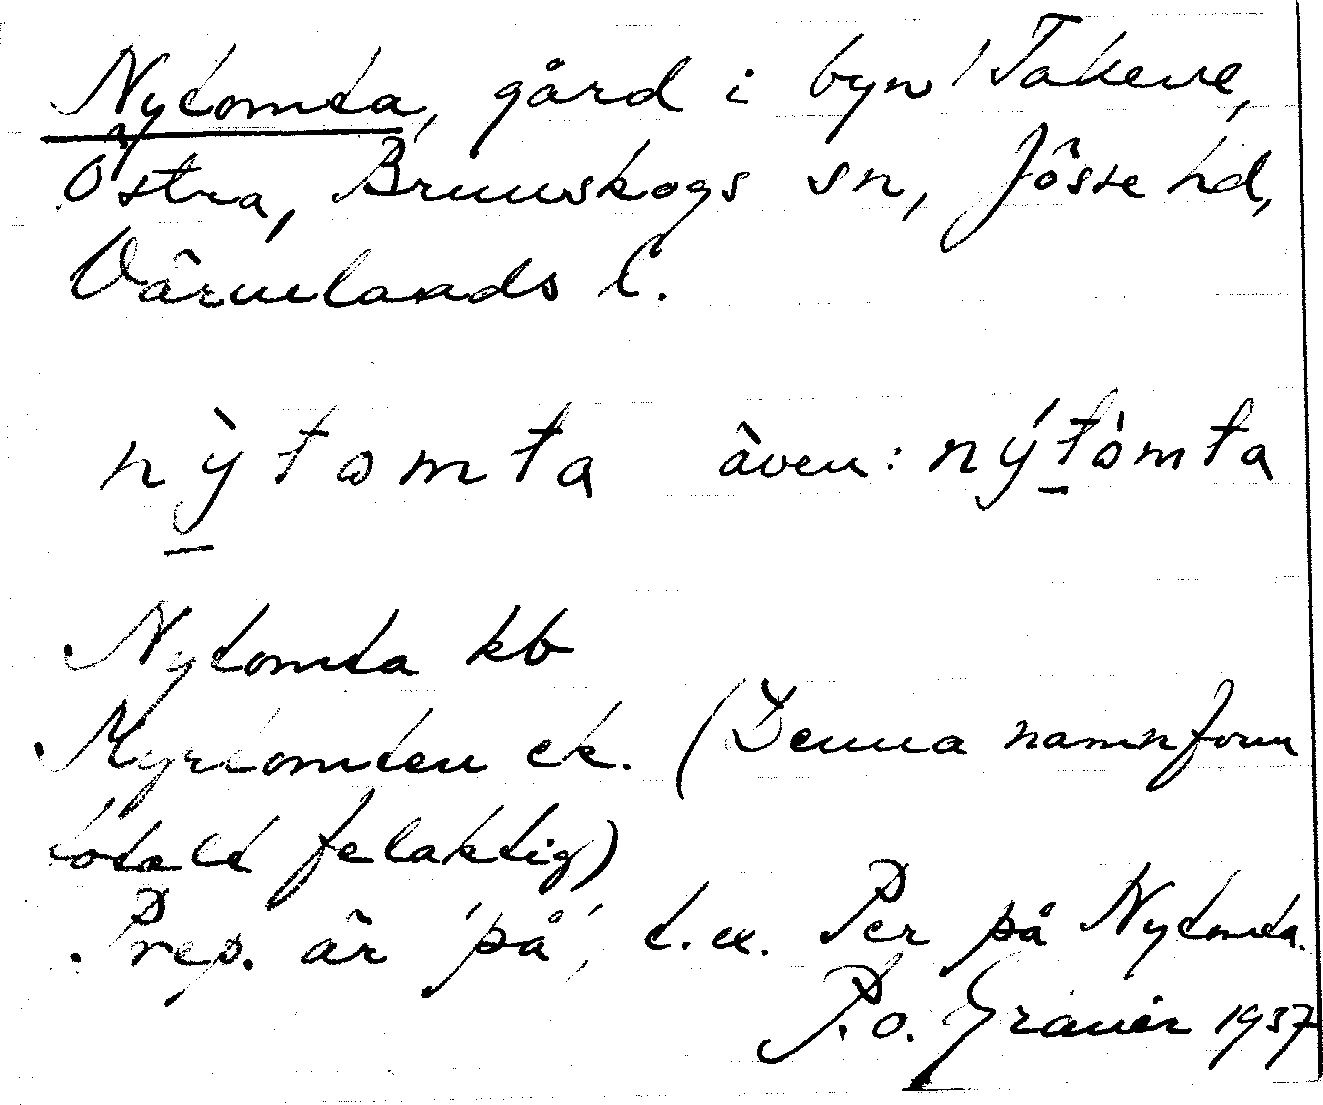 Nytomta, gård i byn Takene,
Östra, Brunskogs sn, Jösse hd,
Värmlands l.
nỳtomta även: nýtòmta
Nytomta kb
Myrtomten ek. (Denna namnform
totalt felaktig)
Prep. är 'på', t.ex. Per på Nytomta.
P.o. Granér 1937